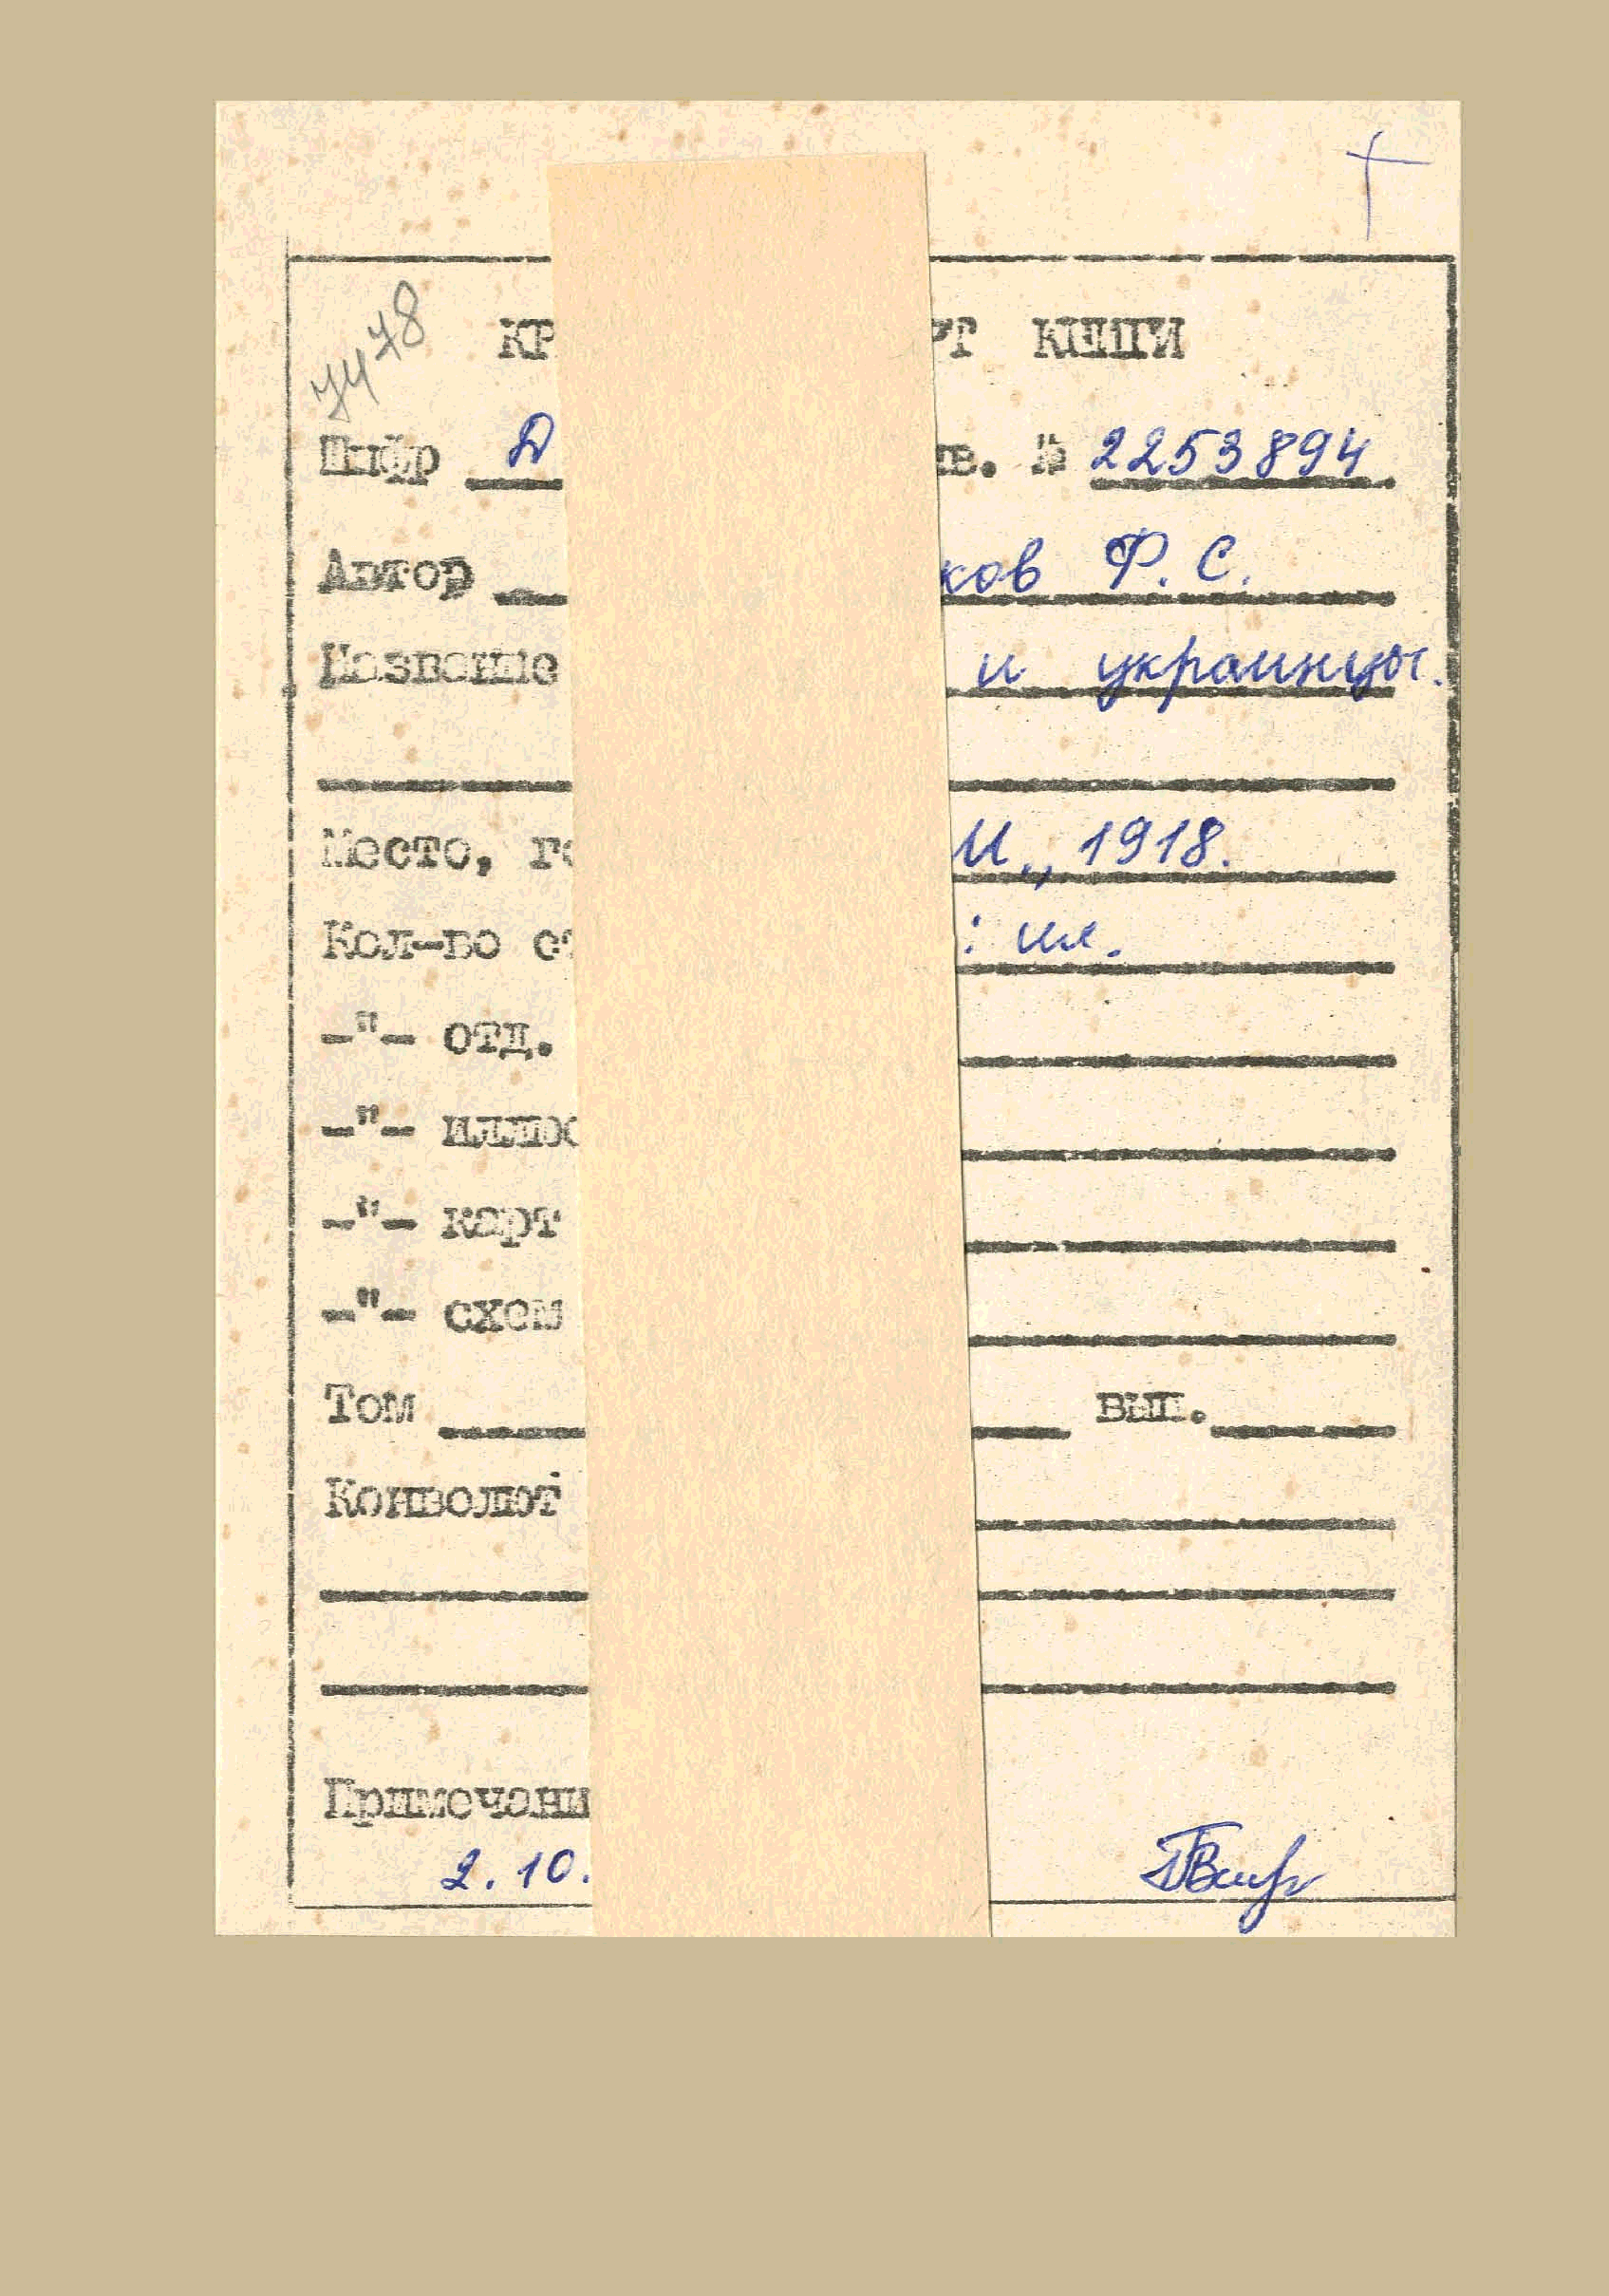 7478
КР РТ КНИГИ
Шифр Д нв. № 2253894
Автор ков Ф. С.
Название и украинцы.
Место, го М., 1918.
Кол-во ст : ил.
-"- отд.
-"- иллюс
-"- карт
-"- схем
Том вып.
Конволют
Примечани
2.10.